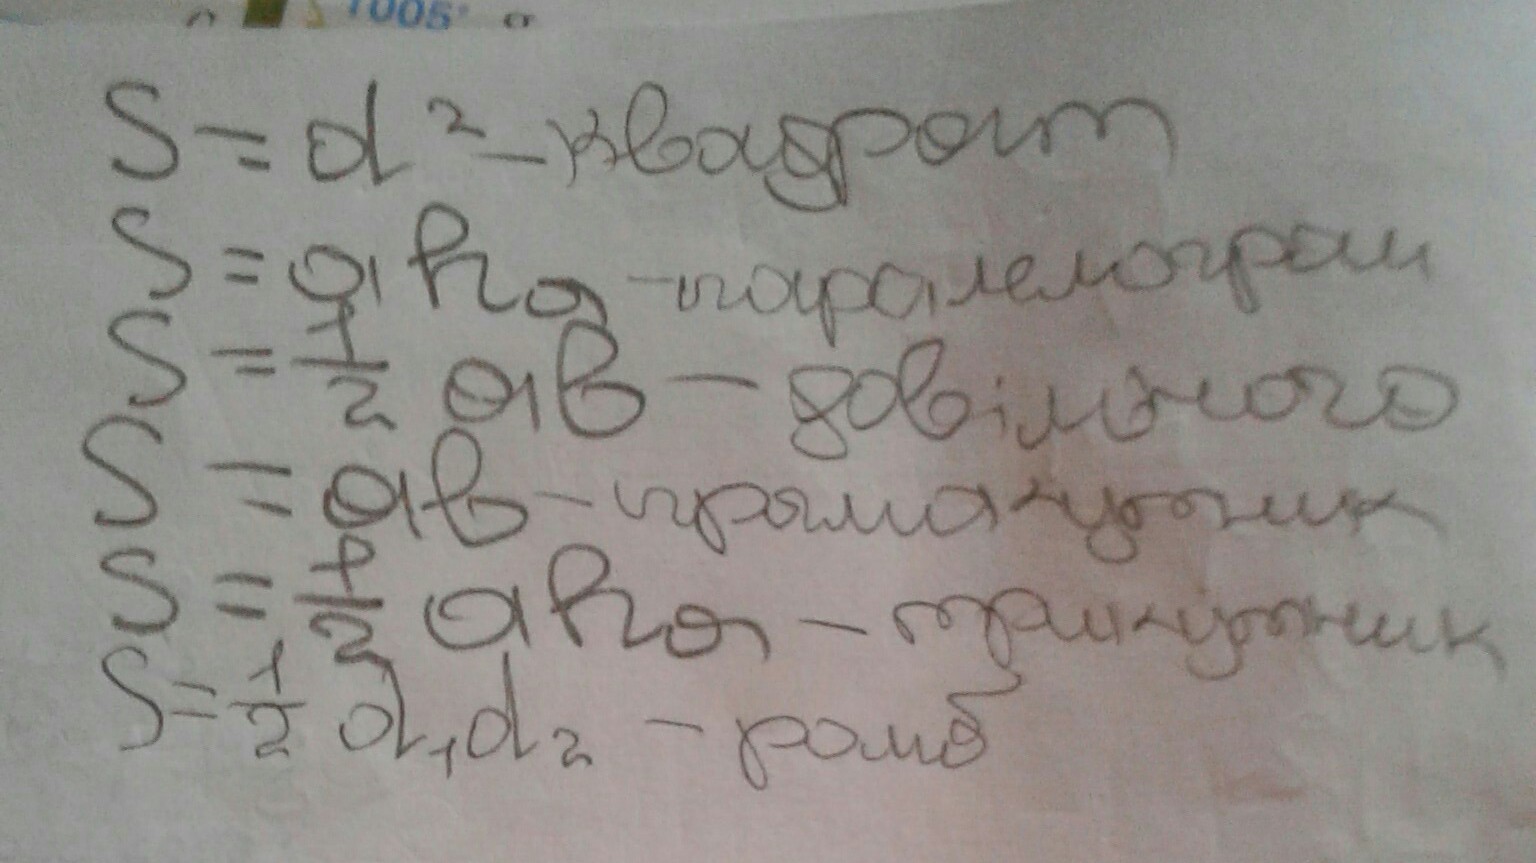 1005
S = d² – квадрат
S = a hₐ – паралелограм
S = 1/2 ab – довільного
S = ab – прямокутник
S = 1/2 a hₐ – трикутник
S = 1/2 d₁d₂ – ромб